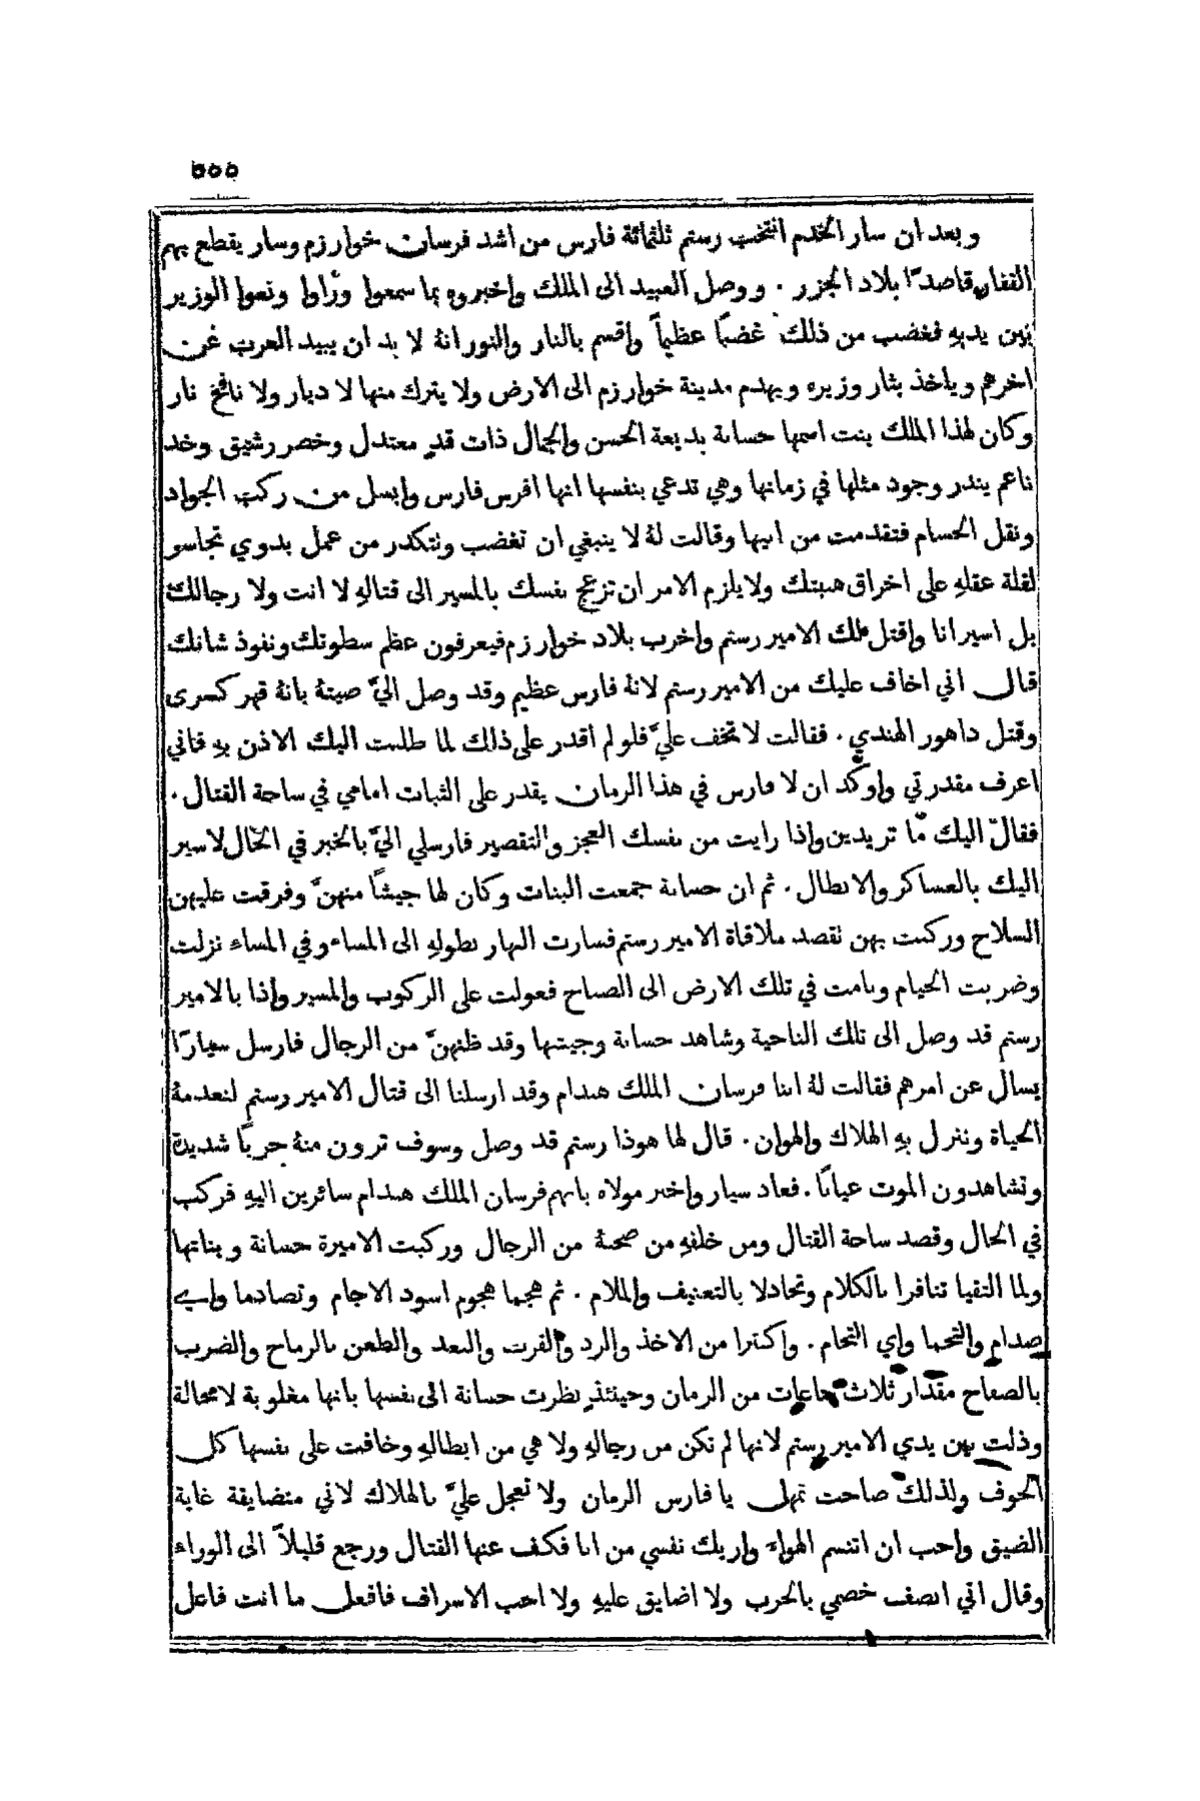 ٥٥٥
وبعد ان سار الخدم انتخب رستم ثلثمائة فارس من اشد فرسان خوارزم وسار يقطع بهم
القفار قاصدًا بلاد الجزر . ووصل العبيد الى الملك واخبروه بما سمعوا ورأوا ونعوا الوزير
بين يديهِ فغضب من ذلك غضبًا عظيماً واقسم بالنار والنور انهُ لا بد ان يبيد العرب عن
اخرهم وياخذ بثار وزيره ويهدم مدينة خوارزم الى الارض ولا يترك منها لا ديار ولا نافخ نار
وكان لهذا الملك بنت اسمها حسانة بديعة الحسن والجمال ذات قدٍ معتدل وخصر رشيق وخد
ناعم يندر وجود مثلها في زمانها وهي تدعي بنفسها انها افرس فارس وابسل من ركب الجواد
ونقل الحسام فتقدمت من ابيها وقالت لهُ لا ينبغي ان تغضب وتتكدر من عمل بدوي تجاسر
لقلة عقلهِ على اخراق هيبتك ولا يلزم الامر ان تزعج نفسك بالمسير الى قتالهِ لا انت ولا رجالك
بل اسير انا واقتل لك الامير رستم واخرب بلاد خوارزم فيعرفون عظم سطوتك ونفوذ شانك
قال اني اخاف عليك من الامير رستم لانهُ فارس عظيم وقد وصل اليَّ صيتهُ بانهُ قهر كسرى
وقتل داهور الهندي . فقالت لا تخف عليَّ فلو لم اقدر على ذلك لما طلبت اليك الاذن بهِ فاني
اعرف مقدرتي واوكد ان لا فارس في هذا الزمان يقدر على الثبات امامي في ساحة القتال .
فقال اليك ما تريدين واذا رايت من نفسك العجز والتقصير فارسلي اليَّ بالخبر في الحال لاسير
اليك بالعساكر والابطال . ثم ان حسانة جمعت البنات وكان لها جيشًا منهنَّ وفرقت عليهن
السلاح وركبت بهن تقصد ملاقاة الامير رستم فسارت النهار بطولهِ الى المساء وفي المساء نزلت
وضربت الخيام ونامت في تلك الارض الى الصباح فعولت على الركوب والمسير واذا بالامير
رستم قد وصل الى تلك الناحية وشاهد حسانة وجيشها وقد ظنهنَّ من الرجال فارسل سيارًا
يسال عن امرهم فقالت لهُ اننا فرسان الملك هندام وقد ارسلنا الى قتال الامير رستم لنعدمهُ
الحياة وننزل بهِ الهلاك والهوان . قال لها هوذا رستم قد وصل وسوف ترون منهُ حربًا شديدة
وتشاهدون الموت عيانًا . فعاد سيار واخبر مولاه بانهم فرسان الملك هندام سائرين اليهِ فركب
في الحال وقصد ساحة القتال ومن خلفهِ من صحبهُ من الرجال وركبت الاميرة حسانة وبناتها
ولما التقيا تنافرا بالكلام وتجادلا بالتعنيف والملام . ثم هجما هجوم اسود الاجام وتصادما واي
صدام والتحما واي التحام . واكثرا من الاخذ والرد والقرب والبعد والطعن بالرماح والضرب
بالصفاح مقدار ثلاث ساعات من الزمان وحينئذٍ نظرت حسانة الى نفسها بانها مغلوبة لا محالة
وذلت بين يدي الامير رستم لانها لم تكن من رجالهِ ولا هي من ابطالهِ وخافت على نفسها كل
الخوف ولذلك صاحت تمهل يا فارس الزمان ولا تعجل عليَّ بالهلاك لاني متضايقة غاية
الضيق واحب ان اتنسم الهواء واريك نفسي من انا فكف عنها القتال ورجع قليلاً الى الوراء
وقال اني انصف خصمي بالحرب ولا اضايق عليهِ ولا احب الاسراف فافعل ما انت فاعل